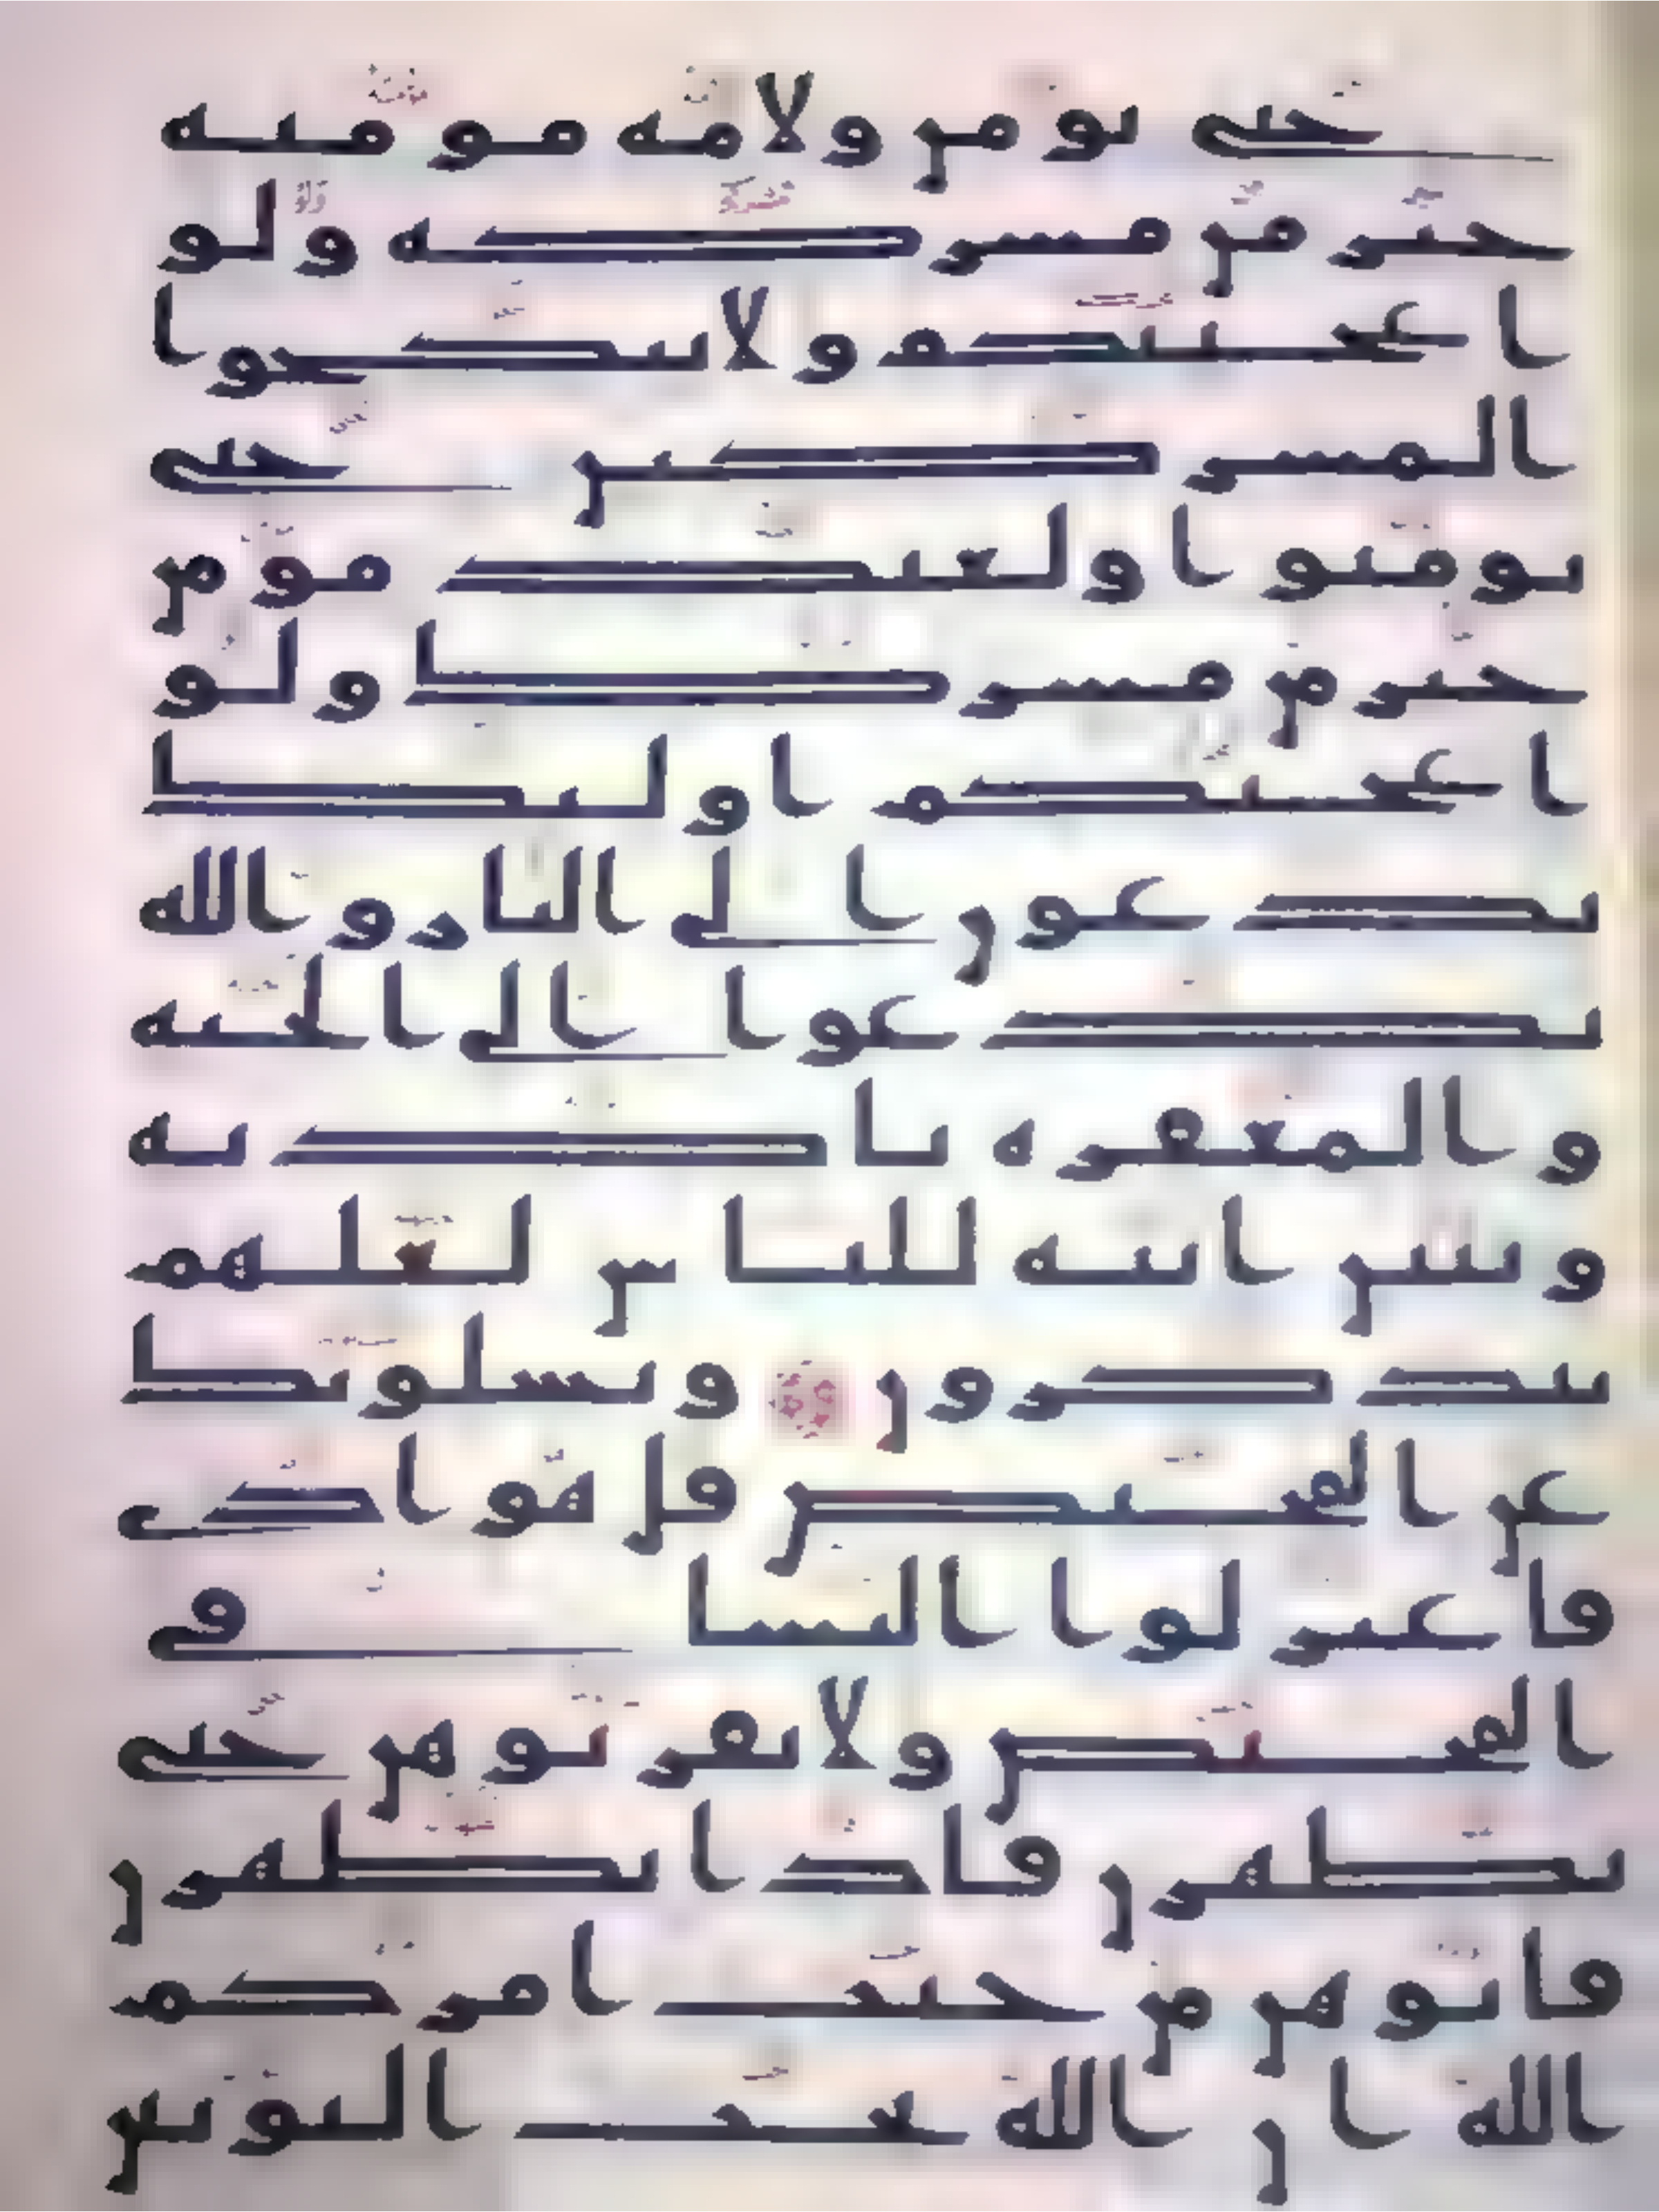 حتى يومن ولامه مومنه
خير من مشركه ولو
اعجبتكم ولا تنكحوا
المشركين حتى
يومنوا ولعبد مومن
خير من مشرك ولو
اعجبكم اوليك
يدعون الى النار والله
يدعوا الى الجنه
والمغفره باذنه
ويبين ايته للناس لعلهم
يتذكرون ويسلونك
عن المحيض قل هو اذى
فاعتزلوا النسا في
المحيض ولا تقربوهن حتى
يطهرن فاذا تطهرن
فاتوهن من حيث امركم
الله ان الله يحب التوبين